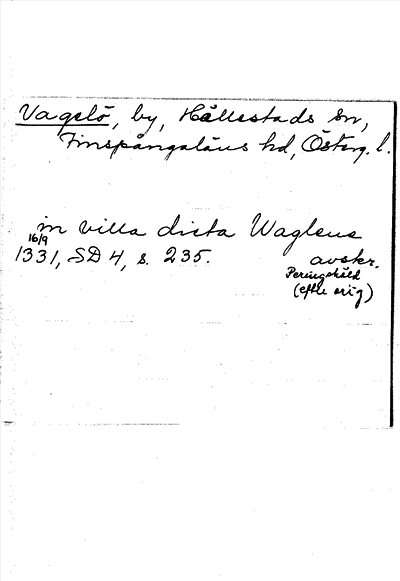 Vagelö, by, Hällestads sn,
Finspångaläns hd, Österg. l.
in villa dicta Wagleus
16/9
1331, SD 4, s. 235. avskr.
Peringskiöld
(efter orig)